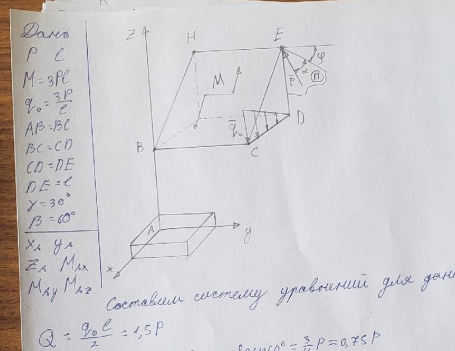 Дано
P l
M = 3Pl
q₀ = 3P/l
AB = BC
BC = CD
CD = DE
DE = l
γ = 30°
β = 60°
X_A Y_A
Z_A M_Ax
M_Ay M_Az
z
H
E
φ
M
P̄
α
П
q̄₀
D
B
C
A
x
y
Составим систему уравнений для
Q = q₀l/2 = 1,5P
= 3/4 P = 0,75P